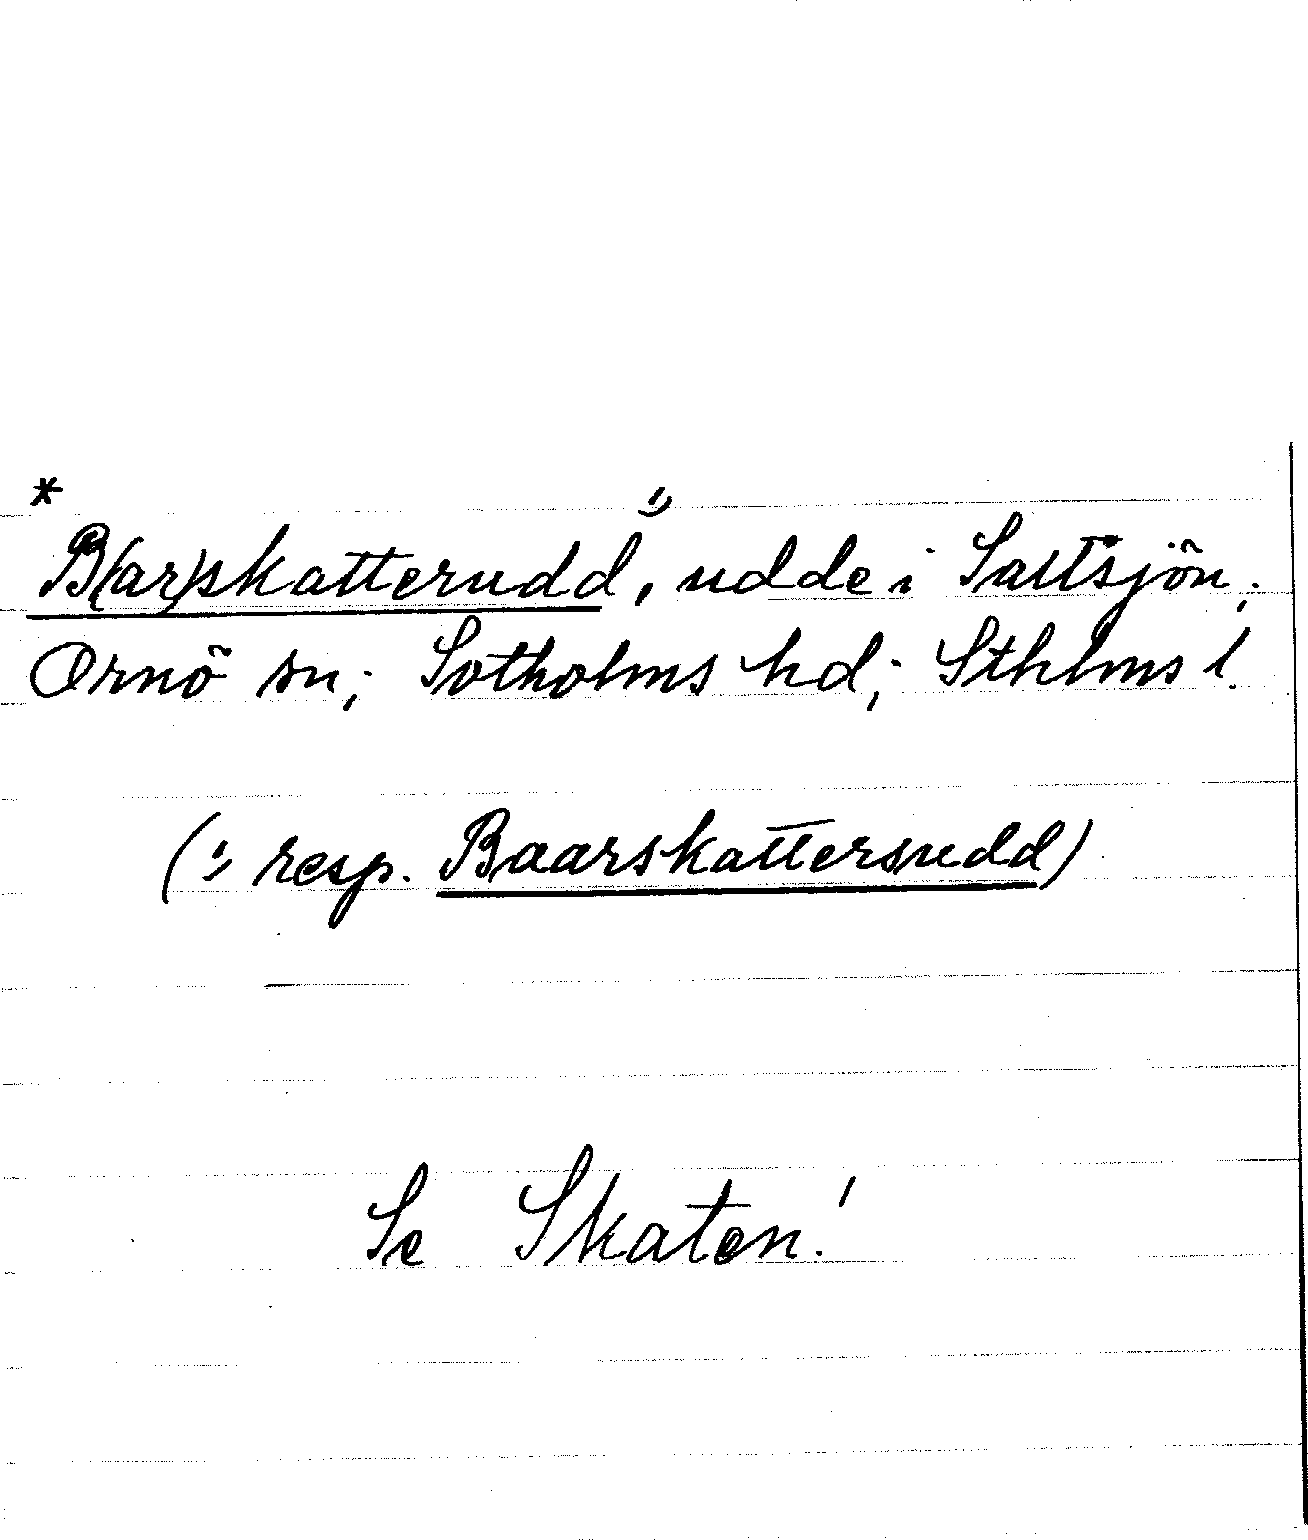 * B(ar)skatterudd ¹⁾, udde i Saltsjön;
Ornö sn; Sotholms hd; Sthlms l.
(¹⁾ resp. Baarskattersudd)
Se Skaten!